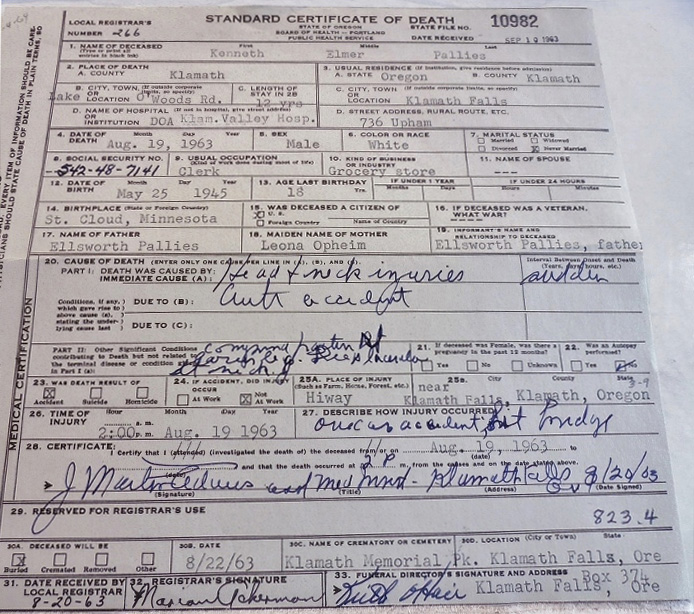 STANDARD CERTIFICATE OF DEATH
LOCAL REGISTRAR'S NUMBER -266
STATE OF OREGON
BOARD OF HEALTH - PORTLAND
PUBLIC HEALTH SERVICE
STATE FILE NO. 10982
DATE RECEIVED SEP 19 1963
1. NAME OF DECEASED First Middle Last
(Type or print all entries in black ink) Kenneth Elmer Pallies
2. PLACE OF DEATH
A. COUNTY Klamath
3. USUAL RESIDENCE (If institution, give residence before admission)
A. STATE Oregon B. COUNTY Klamath
B. CITY, TOWN, (If outside corporate limits, so specify) OR LOCATION Lake O'Woods Rd.
C. LENGTH OF STAY IN 2B 12 yrs
C. CITY, TOWN, OR LOCATION Klamath Falls
D. NAME OF HOSPITAL (If not in hospital, give street address) OR INSTITUTION DOA Klam.Valley Hosp.
D. STREET ADDRESS, RURAL ROUTE, ETC.
736 Upham
4. DATE OF DEATH Month Day Year
Aug. 19, 1963
5. SEX
Male
6. COLOR OR RACE
White
7. MARITAL STATUS
Married Widowed
Divorced Never Married
8. SOCIAL SECURITY NO.
542-48-7141
9. USUAL OCCUPATION
(Kind of work done during most of life)
Clerk
10. KIND OF BUSINESS OR INDUSTRY
Grocery store
11. NAME OF SPOUSE
---
12. DATE OF BIRTH Month Day Year
May 25 1945
13. AGE LAST BIRTHDAY
18 Yrs.
IF UNDER 1 YEAR
Months Days
IF UNDER 24 HOURS
Hours Min.
14. BIRTHPLACE (State or Foreign Country)
St. Cloud, Minnesota
15. WAS DECEASED A CITIZEN OF
X U. S.
Foreign Country Name of Country
16. IF DECEASED WAS A VETERAN, WHAT WAR?
----
17. NAME OF FATHER
Ellsworth Pallies
18. MAIDEN NAME OF MOTHER
Leona Opheim
19. INFORMANT'S NAME AND RELATIONSHIP TO DECEASED
Ellsworth Pallies, father
MEDICAL CERTIFICATION
20. CAUSE OF DEATH (ENTER ONLY ONE CAUSE PER LINE IN (A), (B), AND (C).
PART I: DEATH WAS CAUSED BY:
IMMEDIATE CAUSE (A): Head & neck injuries
Interval Between Onset and Death
(Years, days, hours, etc.)
sudden
Conditions, if any, which gave rise to above cause (a), stating the underlying cause last
DUE TO (B): Auto accident
DUE TO (C):
PART II: Other Significant Conditions contributing to Death but not related to the terminal disease or condition given in Part I (a):
21. If deceased was Female, was there a pregnancy in the past 12 months?
Yes No Unknown
22. Was an Autopsy performed?
Yes No
23. WAS DEATH RESULT OF
X Accident Suicide Homicide
24. IF ACCIDENT, DID INJURY OCCUR
At Work X Not At Work
25A. PLACE OF INJURY
(Such as Farm, Home, Forest, etc.)
Hiway
City County State
near Klamath Falls, Klamath, Oregon
26. TIME OF INJURY Hour Month Day Year
2:00 p.m. Aug. 19 1963
27. DESCRIBE HOW INJURY OCCURRED
one car accident, hit bridge
28. CERTIFICATE:
I Certify that I (attended) (investigated the death of) the deceased from/on Aug. 19, 1963 to
(date) (date)
and that the death occurred at 2 P m., from the causes and on the date stated above.
(Signature) (Title) (Address) (Date Signed)
Klamath Falls 8/20/63
29. RESERVED FOR REGISTRAR'S USE
823.4
30A. DECEASED WILL BE
X Buried Cremated Removed Other
30B. DATE
8/22/63
30C. NAME OF CREMATORY OR CEMETERY
Klamath Memorial Pk.
30D. LOCATION (City or Town) State
Klamath Falls, Ore
31. DATE RECEIVED BY LOCAL REGISTRAR
8-20-63
32. REGISTRAR'S SIGNATURE
Marian Ackerman
33. FUNERAL DIRECTOR'S SIGNATURE AND ADDRESS
Box 374
Klamath Falls, Ore